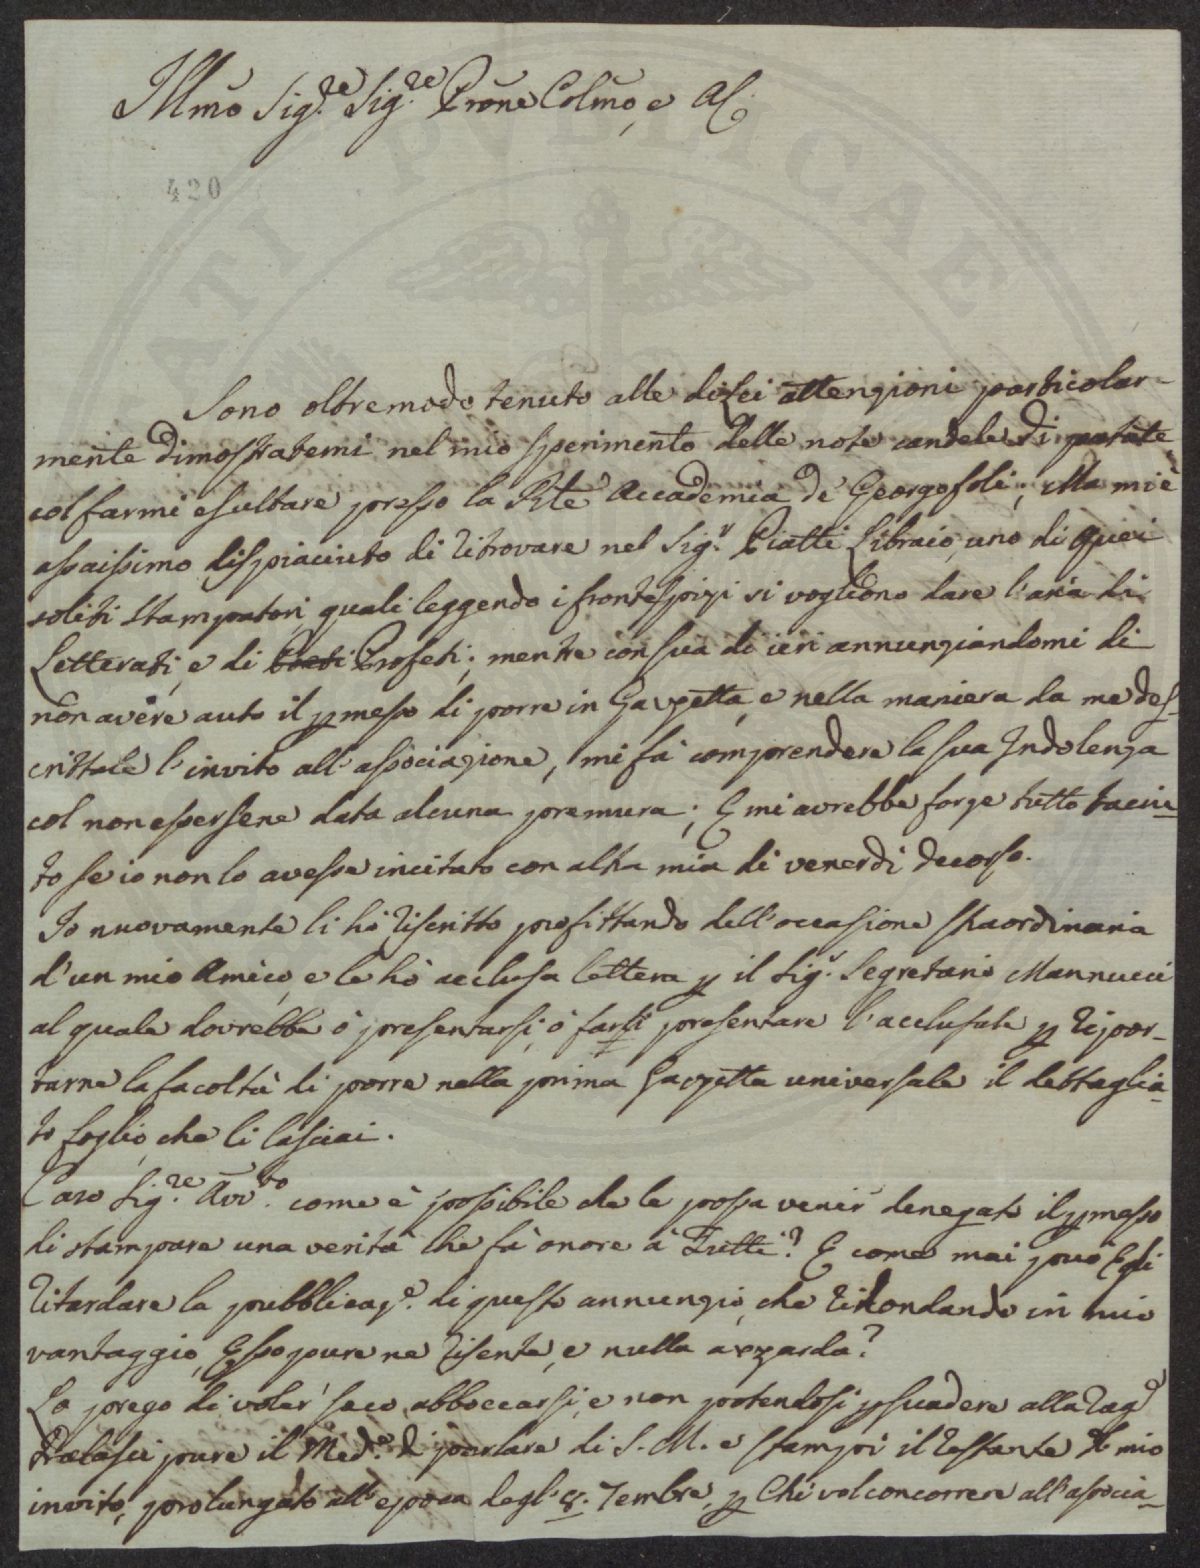 Illmo Sig.re Sig.re Prone Colmo, e
420
Sono oltremodo tenuto alle di Lei attenzioni particolar-
mente dimostratemi nel mio sperimento delle note candele di patate
col farmi esultare presso la Rle Accademia de Georgofoli; Ma mi è
assaissimo dispiaciuto di ritrovare nel Sig.r Piatti Libraio, uno di quei
soliti stampatori, quali leggendo i frontespizi si vogliono dare l'aria di
Letterati, e di Profeti; mentre con sua di ieri annunziandomi di
non avere auto il pmesso di porre in Gazzetta, e nella maniera da me des-
crittale l'invito all'associazione, mi fà comprendere la sua Indolenza
col non essersene data alcuna premura; E mi avrebbe forze tutto taciu-
to se io non lo avesse incitato con altra mia di venerdi decorso.
Io nuovamente li hò riscritto profittando dell'occasione straordinaria
d'un mio Amico, e le hò acclusa lettera p il Sig.r Segretario Mannucci
al quale dovrebbe ò presentarsi, ò farsi presentare l'acclusale p ripor-
tarne la facoltà di porre nella prima Gazzetta universale il dettaglia-
to foglio, che li lasciai.
Caro Sig.re Avv.to come è possibile che le possa venir denegato il pmesso
di stampare una verità che fà onore à Tutti? E come mai può Egli
ritardare la pubblicaz.e di questo annunzio, che ridondando in mio
vantaggio, Esso pure ne risente, e nulla azzarda?
La prego di voler seco abboccarsi, e non potendosi psuadere alla rag.e
tralasci pure il Med.o di parlare di S. M. e stampi il restante del mio
invito, prolungato all'epoca degl'8. 7embre, p Chi vol concorrere all'associa-